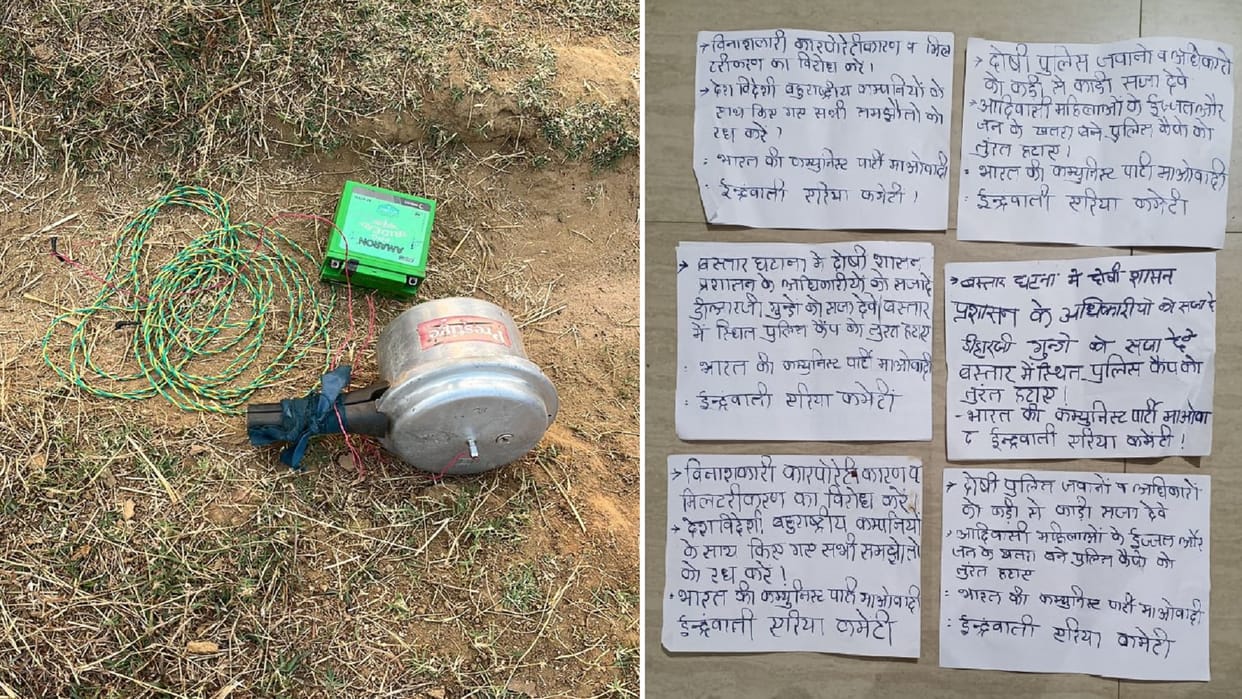 AMARON
Prestige
→ विनाशकारी कारपोरेटीकरण व मिल
टरीकरण का विरोध करे।
→ देश विदेशी बहुराष्ट्रीय कम्पनियों के
साथ किए गए सभी समझौतो को
रध करे?
: भारत की कम्युनिस्ट पार्टी माओवादी
: ईन्द्रवाली एरिया कमेटी!
→ दोषी पुलिस जवानो व अधिकारी
को कड़ी से काड़ी सजा देवे
→ आदिवासी महिलाओं के ईज्जत और
जन के खतरा बने पुलिस कैंपो को
तुरंत हटाए!
: भारत की कम्युनिस्ट पार्टी माओवादी
: ईन्द्रवाली एरिया कमेटी
→ बस्तार घटाना मे दोषी शासन
प्रशासन के अधिकारीयो को सजा दे
गुन्डो को सजा देवे। बस्तार
में स्थित पुलिस कैंप को तुरंत हटाए
: भारत की कम्युनिस्ट पार्टी माओवादी
: ईन्द्रवाली एरिया कमेटी
→ बस्तार घटना मे दोषी शासन
प्रशासन के अधिकारीयो को सजा दे
गुन्डो को सजा देवे
बस्तार में स्थित पुलिस कैंप को
तुरंत हटाए!
- भारत की कम्युनिस्ट पार्टी माओवा
द ईन्द्रवाली एरिया कमेटी!
→ विनाशकारी कारपोरेटीकारण व
मिलटरीकरण का विरोध करें
→ देश विदेशी बहुराष्ट्रीय कम्पनियो
के साथ किए गए सभी समझौतो
को रध करें!
: भारत की कम्युनिस्ट पार्टी माओवादी
: ईन्द्रवाली एरिया कमेटी
→ दोषी पुलिस जवानों व अधिकारी
को कड़ी से काड़ी सजा देवे
→ आदिवासी महिलाओ के ईज्जत और
जन के खतरा बने पुलिस कैंपो को
तुरंत हटाए
: भारत की कम्युनिस्ट पार्टी माओवादी
: ईन्द्रवाली एरिया कमेटी